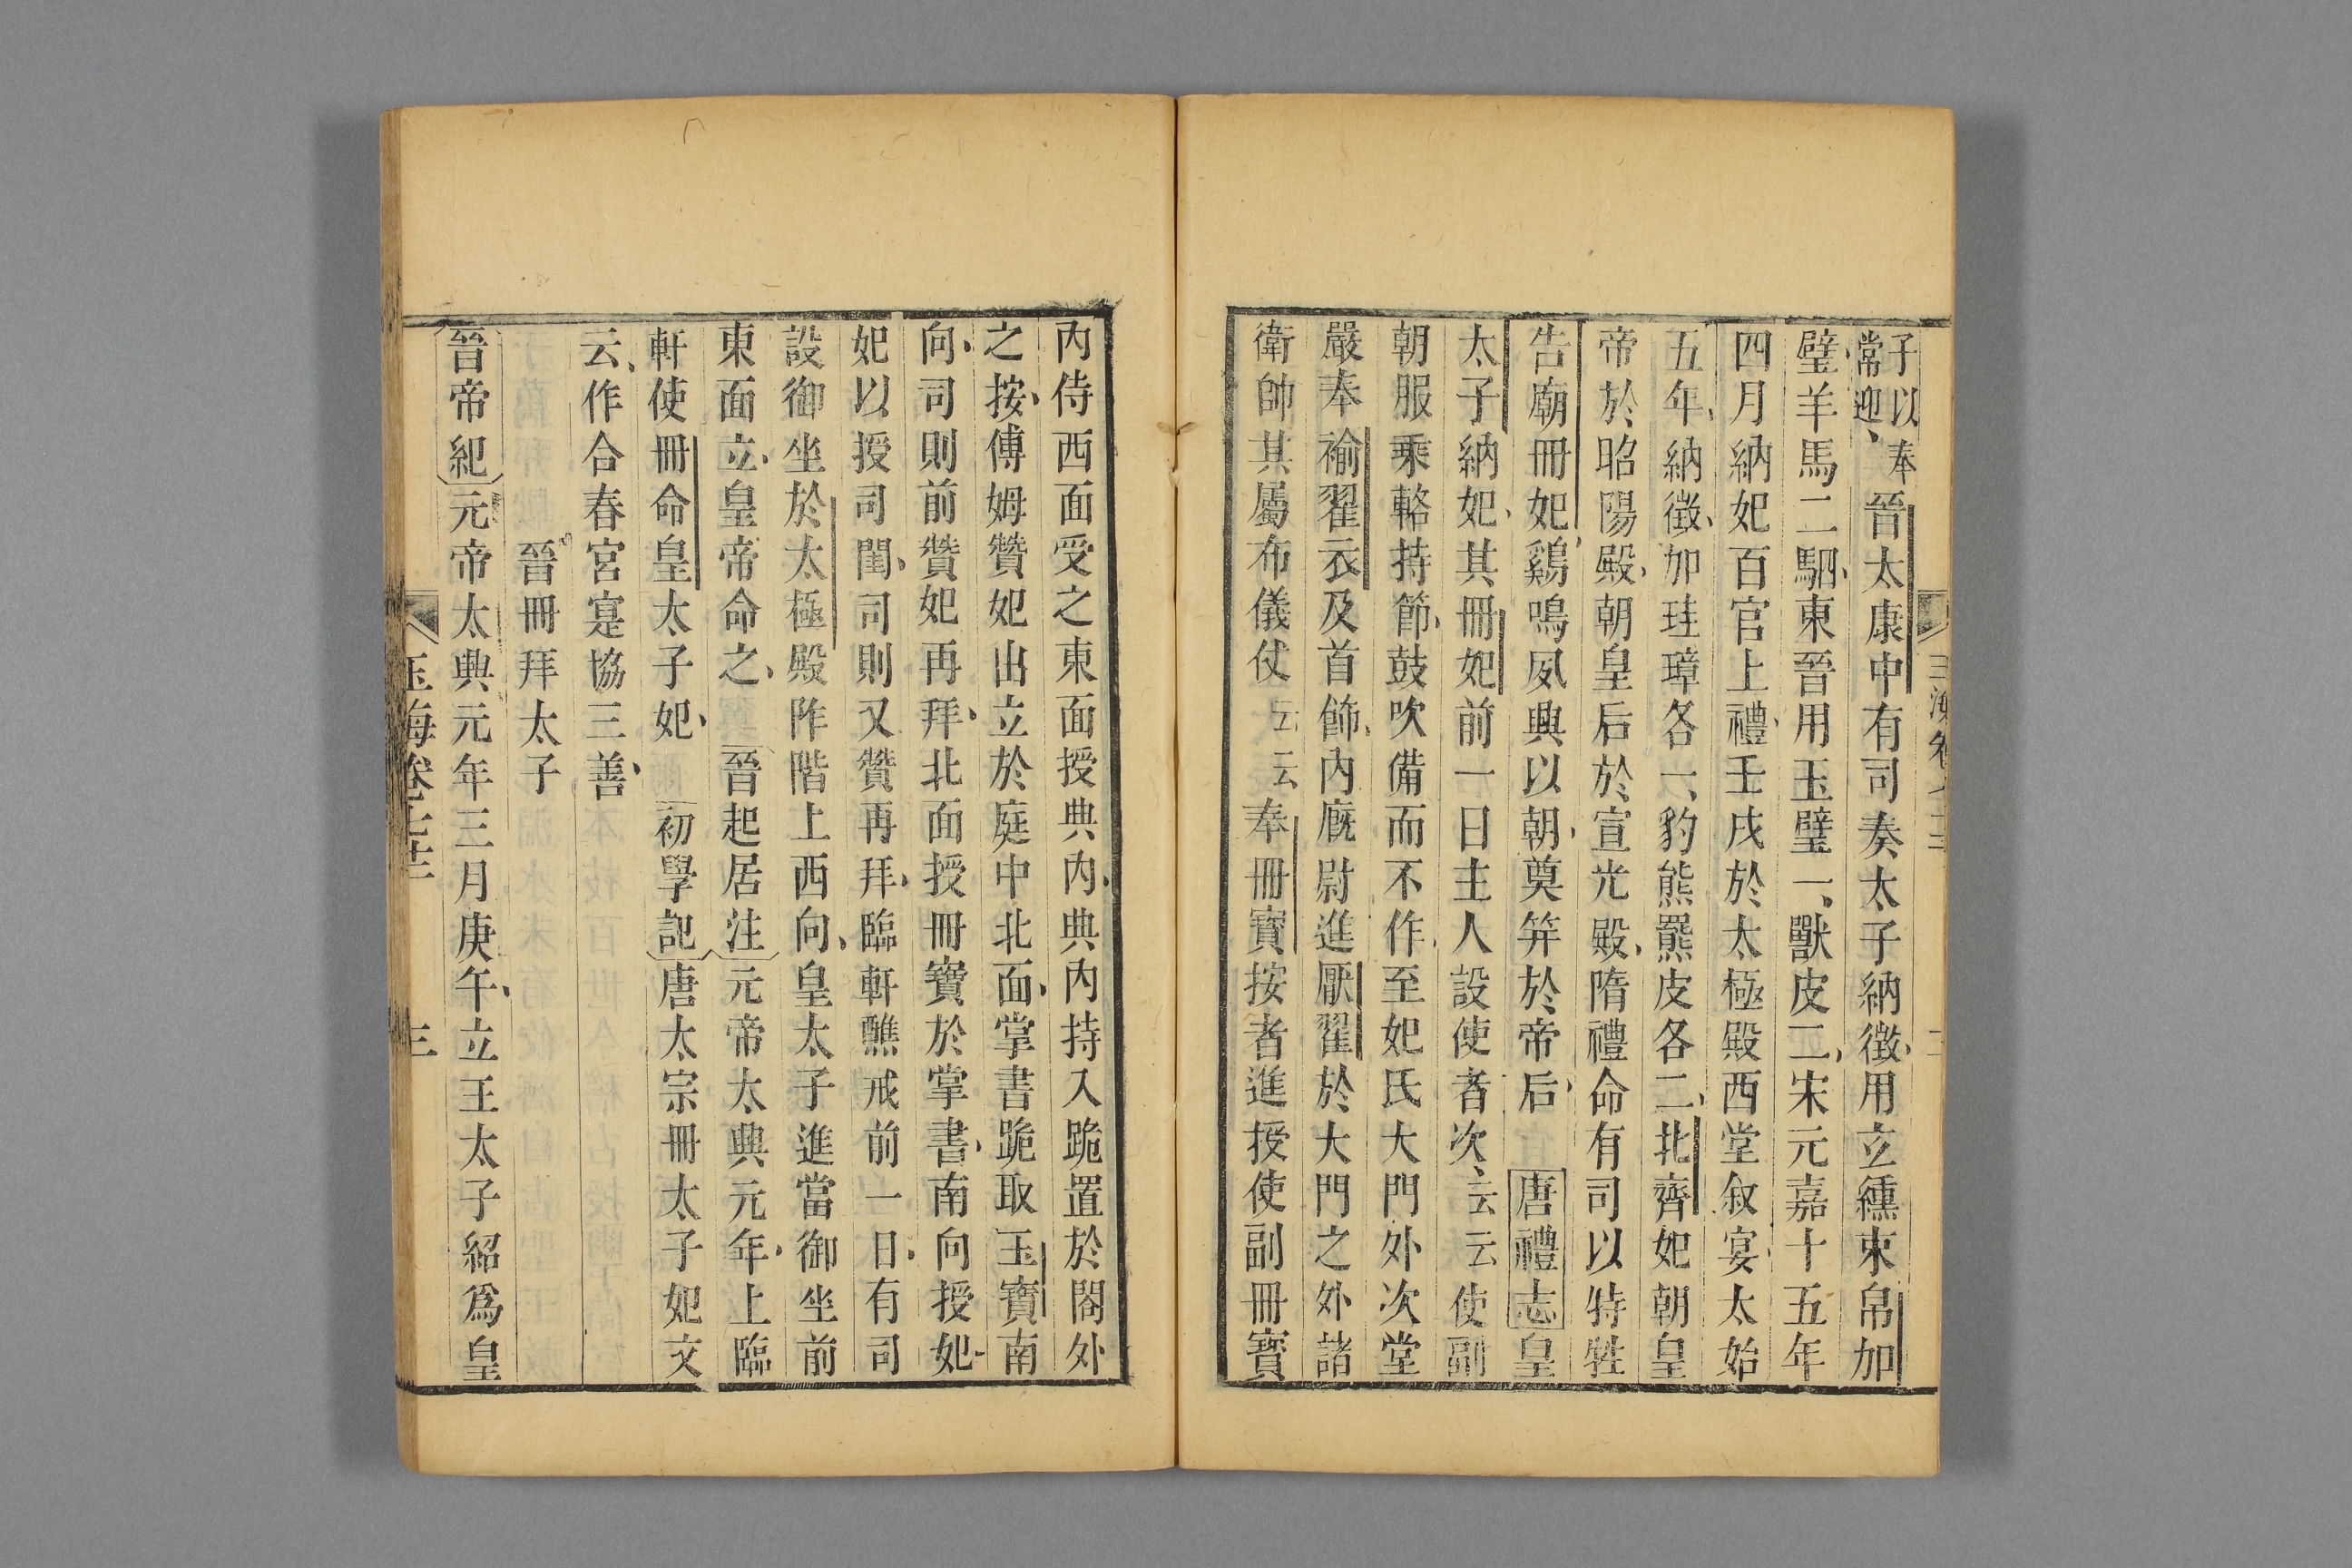 子以奉
常迎、
晉太康中有司奏太子納徵用立纁束帛加
璧羊馬二駟東晉用玉璧一、獸皮二、宋元嘉十五年
四月納妃百官上禮壬戌於太極殿西堂叙宴太始
五年納徵加珪璋各一、豹熊羆皮各二、北齊妃朝皇
帝於昭陽殿朝皇后於宣光殿隋禮命有司以特牲
告廟冊妃鷄鳴夙興以朝奠笄於帝后唐禮志皇
太子納妃其冊妃前一日主人設使者次、云云使副
朝服乘輅持節鼓吹備而不作至妃氏大門外次堂
嚴奉褕翟衣及首飾內廐尉進厭翟於大門之外諸
衛帥其屬布儀仗云云奉冊寶按者進授使副冊寶
內侍西面受之東面授典內典內持入跪置於閤外
之按傅姆贊妃出立於庭中北面掌書跪取玉寶南
向司則前贊妃再拜北面授冊寶於掌書南向授妃
妃以授司閨司則又贊再拜臨軒醮戒前一日有司
設御坐於太極殿阼階上西向皇太子進當御坐前
東面立皇帝命之晉起居注元帝太興元年上臨
軒使冊命皇太子妃初學記唐太宗冊太子妃文
云作合春宮寔協三善
晉冊拜太子
晉帝紀元帝太興元年三月庚午立王太子紹爲皇
玉海卷
三